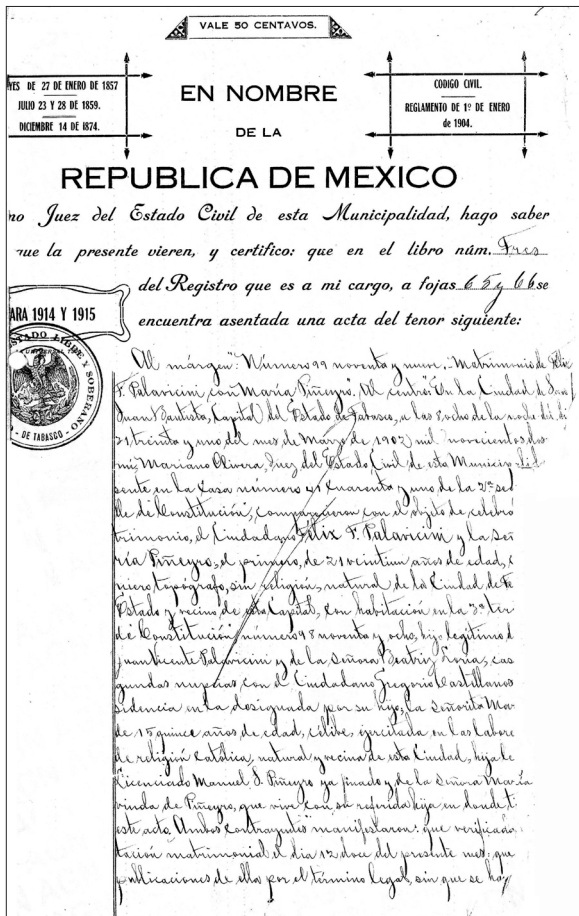 VALE 50 CENTAVOS.
YES DE 27 DE ENERO DE 1857
JULIO 23 Y 28 DE 1859.
DICIEMBRE 14 DE 1874.
EN NOMBRE
DE LA
CODIGO CIVIL.
REGLAMENTO DE 1º DE ENERO
de 1904.
REPUBLICA DE MEXICO
no Juez del Estado Civil de esta Municipalidad, hago saber
que la presente vieren, y certifico: que en el libro núm. Tres
del Registro que es a mi cargo, a fojas 65 y 66 se
ARA 1914 Y 1915
encuentra asentada una acta del tenor siguiente:
ESTADO LIBRE Y SOBERANO
DE TABASCO
Al márgen: "Número 99 noventa y nueve. Matrimonio de Félix
F. Palavicini, con María Piñeyro". Al centro: "En la Ciudad de San
Juan Bautista, Capital del Estado de Tabasco, a las 8 ocho de la noche del
31 treinta y uno del mes de Marzo de 1902 mil novecientos dos
mí, Mariano Olivera, Juez del Estado Civil de esta Municip
sente en la Casa número 41 cuarenta y uno de la
lle de Constitución, comparecieron con el objeto de celebrar
trimonio, el Ciudadano Félix F. Palavicini y la Señ
ría Piñeyro, el primero, de 21 veintiun años de edad,
niero topógrafo, sin religión, natural de la Ciudad de
Estado y vecino de esta Capital, con habitación en la 3ª
de Constitución número 98 noventa y ocho, hijo legítimo d
Juan Vicente Palavicini y de la Señora Beatriz Loria, cas
gundas nupcias, con el Ciudadano Gregorio Castellanos
sidencia en la designada por su hijo; la Señorita Mar
de 15 quince años de edad, célibe, ejercitada en las labore
de religión católica, natural y vecina de esta Ciudad, hija de
Licenciado Manuel S. Piñeyro ya finado y de la Señora María
viuda de Piñeyro, que vive con su referida hija en donde
este acto. Ambos contrayentes manifestaron: que verificada
tación matrimonial el día 12 doce del presente mes; que
publicaciones de ella por el término legal, sin que se hay